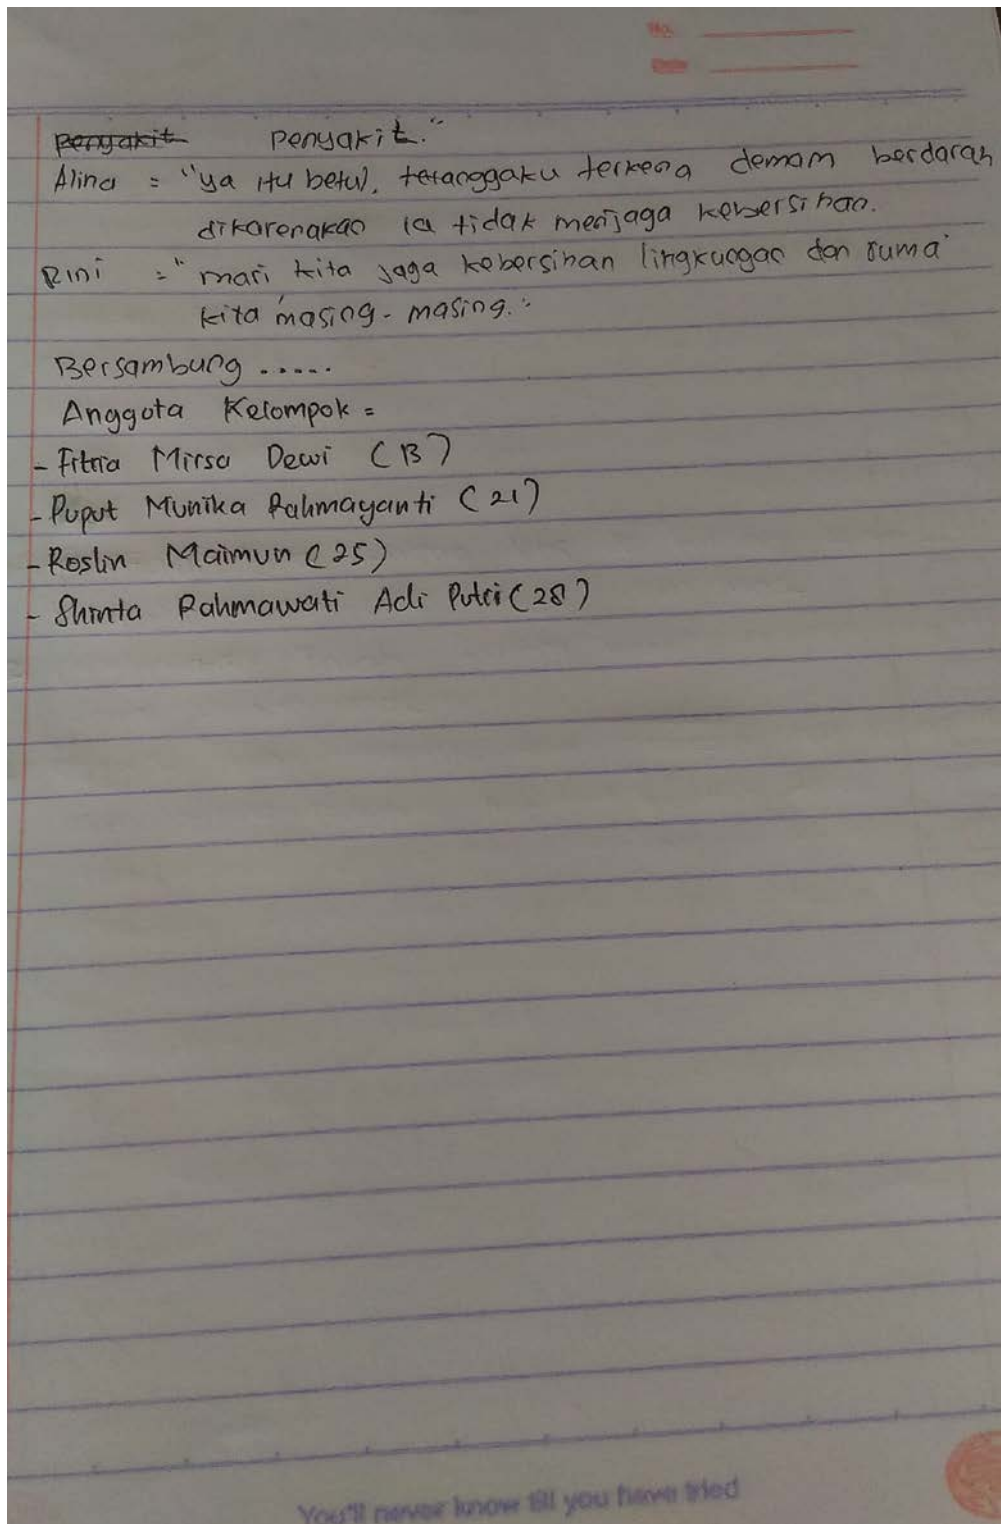 No.
Date
penyakit penyakit."
Alina = "ya itu betul, tetanggaku terkena demam berdarah
dikarenakan ia tidak menjaga kebersihan.
Rini = "mari kita jaga kebersihan lingkungan dan ruma
kita masing-masing."
Bersambung ......
Anggota Kelompok =
- Fitria Mirsa Dewi (13)
- Puput Munika Rahmayanti (21)
- Roslin Maimun (25)
- Shinta Rahmawati Adi Putri (28)
You'll never know till you have tried